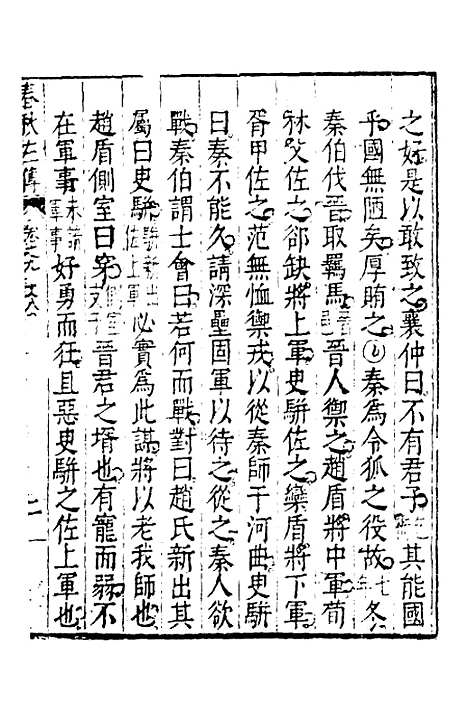 之好是以敢致之襄仲曰不有君子其能國
乎國無陋矣厚賄之秦為令狐之役故七年冬
秦伯伐晉取羈馬晉邑晉人禦之趙盾將中軍荀
林父佐之郤缺將上軍史駢佐之欒盾將下軍
胥甲佐之范無恤禦戎以從秦師于河曲史駢
曰秦不能久請深壘固軍以待之從之秦人欲
戰秦伯謂士會曰若何而戰對曰趙氏新出其
屬曰史駢駢新出佐上軍必實為此謀將以老我師也
趙盾側室曰穿晉君之壻也有寵而弱不
在軍事未嘗軍事好勇而狂且惡史駢之佐上軍也
春秋左傳